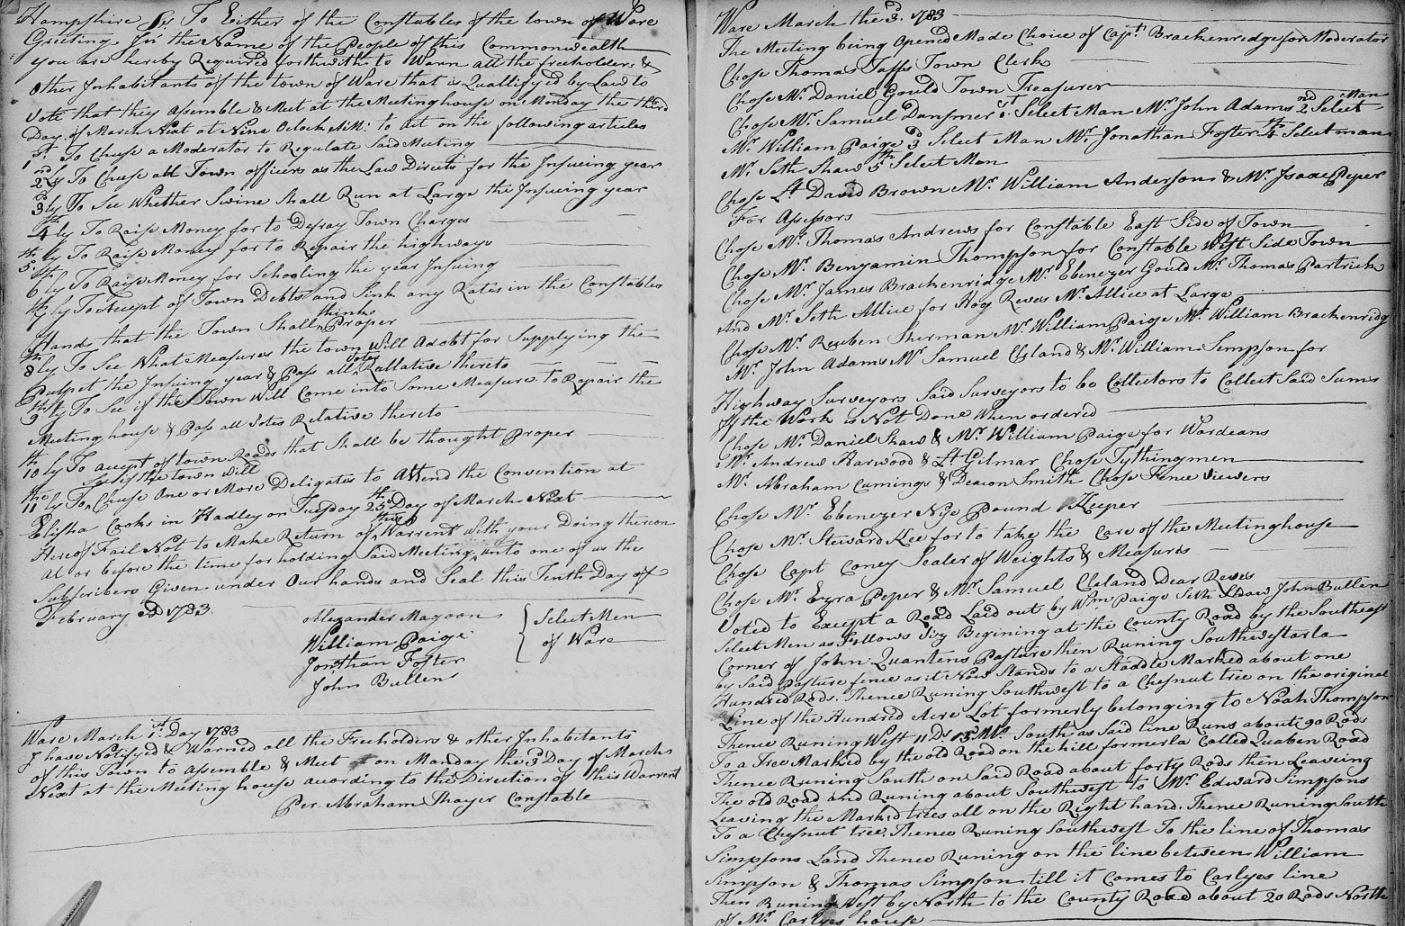 Hampshire Ss To Either of the Constables of the town of Ware
Greeting In the Name of the People of this Commonwealth
you are hereby Required forthwith to Warn all the freeholders &
other Inhabitants of the town of Ware that is Quallifyed by Law to
Vote that they Asemble & Meet at the Meetinghouse on Monday the third
Day of March Next at Nine Oclock AM: to Act on the following articles
1st To Chuse a Moderator to Regulate Said Meeting
2ndly To Chuse all Town officers as the Law Directs for the Insueing year
3dly To See Whether Swine Shall Run at Large the Insueing year
4thly To Raise Money for to Defray Town Charges
5thly To Raise Money for to Repair the highways
6thly To Raise Money for Schooling the year Insuing
7thly To Accept of Town Debts and Sink any Rates in the Constables
Hands that the Town Shall think Proper
8thly To See What Measures the town Will Adobt for Supplying the
Pulpet the Insuing year & Pass all Votes Rellative thereto
9thly To See if the Town Will Come into Some Measure to Repair the
Meetinghouse & Pass all Votes Relative thereto
10thly To accept of town Roads that Shall be thought proper
11thly To See if the town will Chuse One or More Deligates to Attend the Convention at
Elisha Cooks in Hadley on Tuesday 25th Day of March Next
Hereof Fail Not to Make Return of this Warrent with your Doing thereon
at or before the time for holding Said Meeting unto one of us the
Subscribers Given under Our hands and Seal this Tenth Day of
February AD 1783
Alexander Magoon
William Paige
Jonathan Foster
John Bullen
Select Men
of Ware
Ware March 1st Day 1783
I have Notifyed & Warned all the Freeholders & other Inhabitants
of this Town to asemble & Meet on Monday the 3d Day of March
Next at the Meeting house acording to the Direction of this Warrent
Per Abraham Thayer Constable
Ware March the 3d 1783
The Meeting being Opened Made Choice of Capt Brackenridge for Moderator
Chose Thomas Town Clerk
Chose Mr Daniel Gould Town Treasurer
Chose Mr Samuel Dunsmer 1st Select Man Mr John Adams 2nd Select Man
Mr William Paige 3d Select Man Mr Jonathan Foster 4th Select man
Mr Seth Shaw 5th Select Man
Chose Lt David Brown Mr William Anderson & Mr Isaac Peper
For Asessors
Chose Mr Thomas Andrews for Constable East Side of Town
Chose Mr Benjamin Thompson for Constable West Side Town
Chose Mr James Brackenridge Mr Ebenezer Gould Mr Thomas Partrick
And Mr Seth Allice for Hog Reves Mr Allice at Large
Chose Mr Reuben Sherman Mr William Paige Mr William Brackenridg
Mr John Adams Mr Samuel Cleland & Mr William Simpson for
Highway Surveyors Said Surveyors to be Collectors to Collect Said Sums
If the Work is Not Done When ordered
Chose Mr Daniel Shaw & Mr William Paige for Wardeans
Mr Andrew Harwood & Lt Gilmar Chose Tythingmen
Mr Abraham Cumings & Deacon Smith Chose Fence Viewers
Chose Mr Ebenezer Nye Pound Keeper
Chose Mr Steward Lee for to Take the Care of the Meetinghouse
Chose Capt Coney Sealer of Weights & Measurs
Chose Mr Ezra Peper & Mr Samuel Cleland Dear Reves
Voted to Except a Road Laid out by Wm Paige Seth Shaw John Bullen
Select Men as Follows Viz Begining at the County Road by the Southeast
Corner of John Quantens Pasture then Runing Southwestarla
by Said Pasture fence as it Now Stands to a Staddle Marked about one
Hundred Rods. Thence Runing Southwest to a Chesnut tree on the original
Line of the Hundred Acre Lot formerly belonging to Noah Thompson
Thence Runing West 11 Ds 15 Ms South as said line Runs about 90 Rods
To a Tree Marked by the old Road on the hill formerla Called Quaben Road
Thence Runing South on Said Road about forty Rods then Leaveing
The old Road and Runing about Southwest to Mr Edward Simpsons
Leaving the Marked trees all on the Right hand. Thence Runing South
To a Chesnut tree. Thence Runing Southwest To the line of Thomas
Simpsons Land Thence Runing on the line between William
Simpson & Thomas Simpson till it Comes to Carlyes line
Then Runing West by North to the County Road about 20 Rods North
of Mr Carlyes house